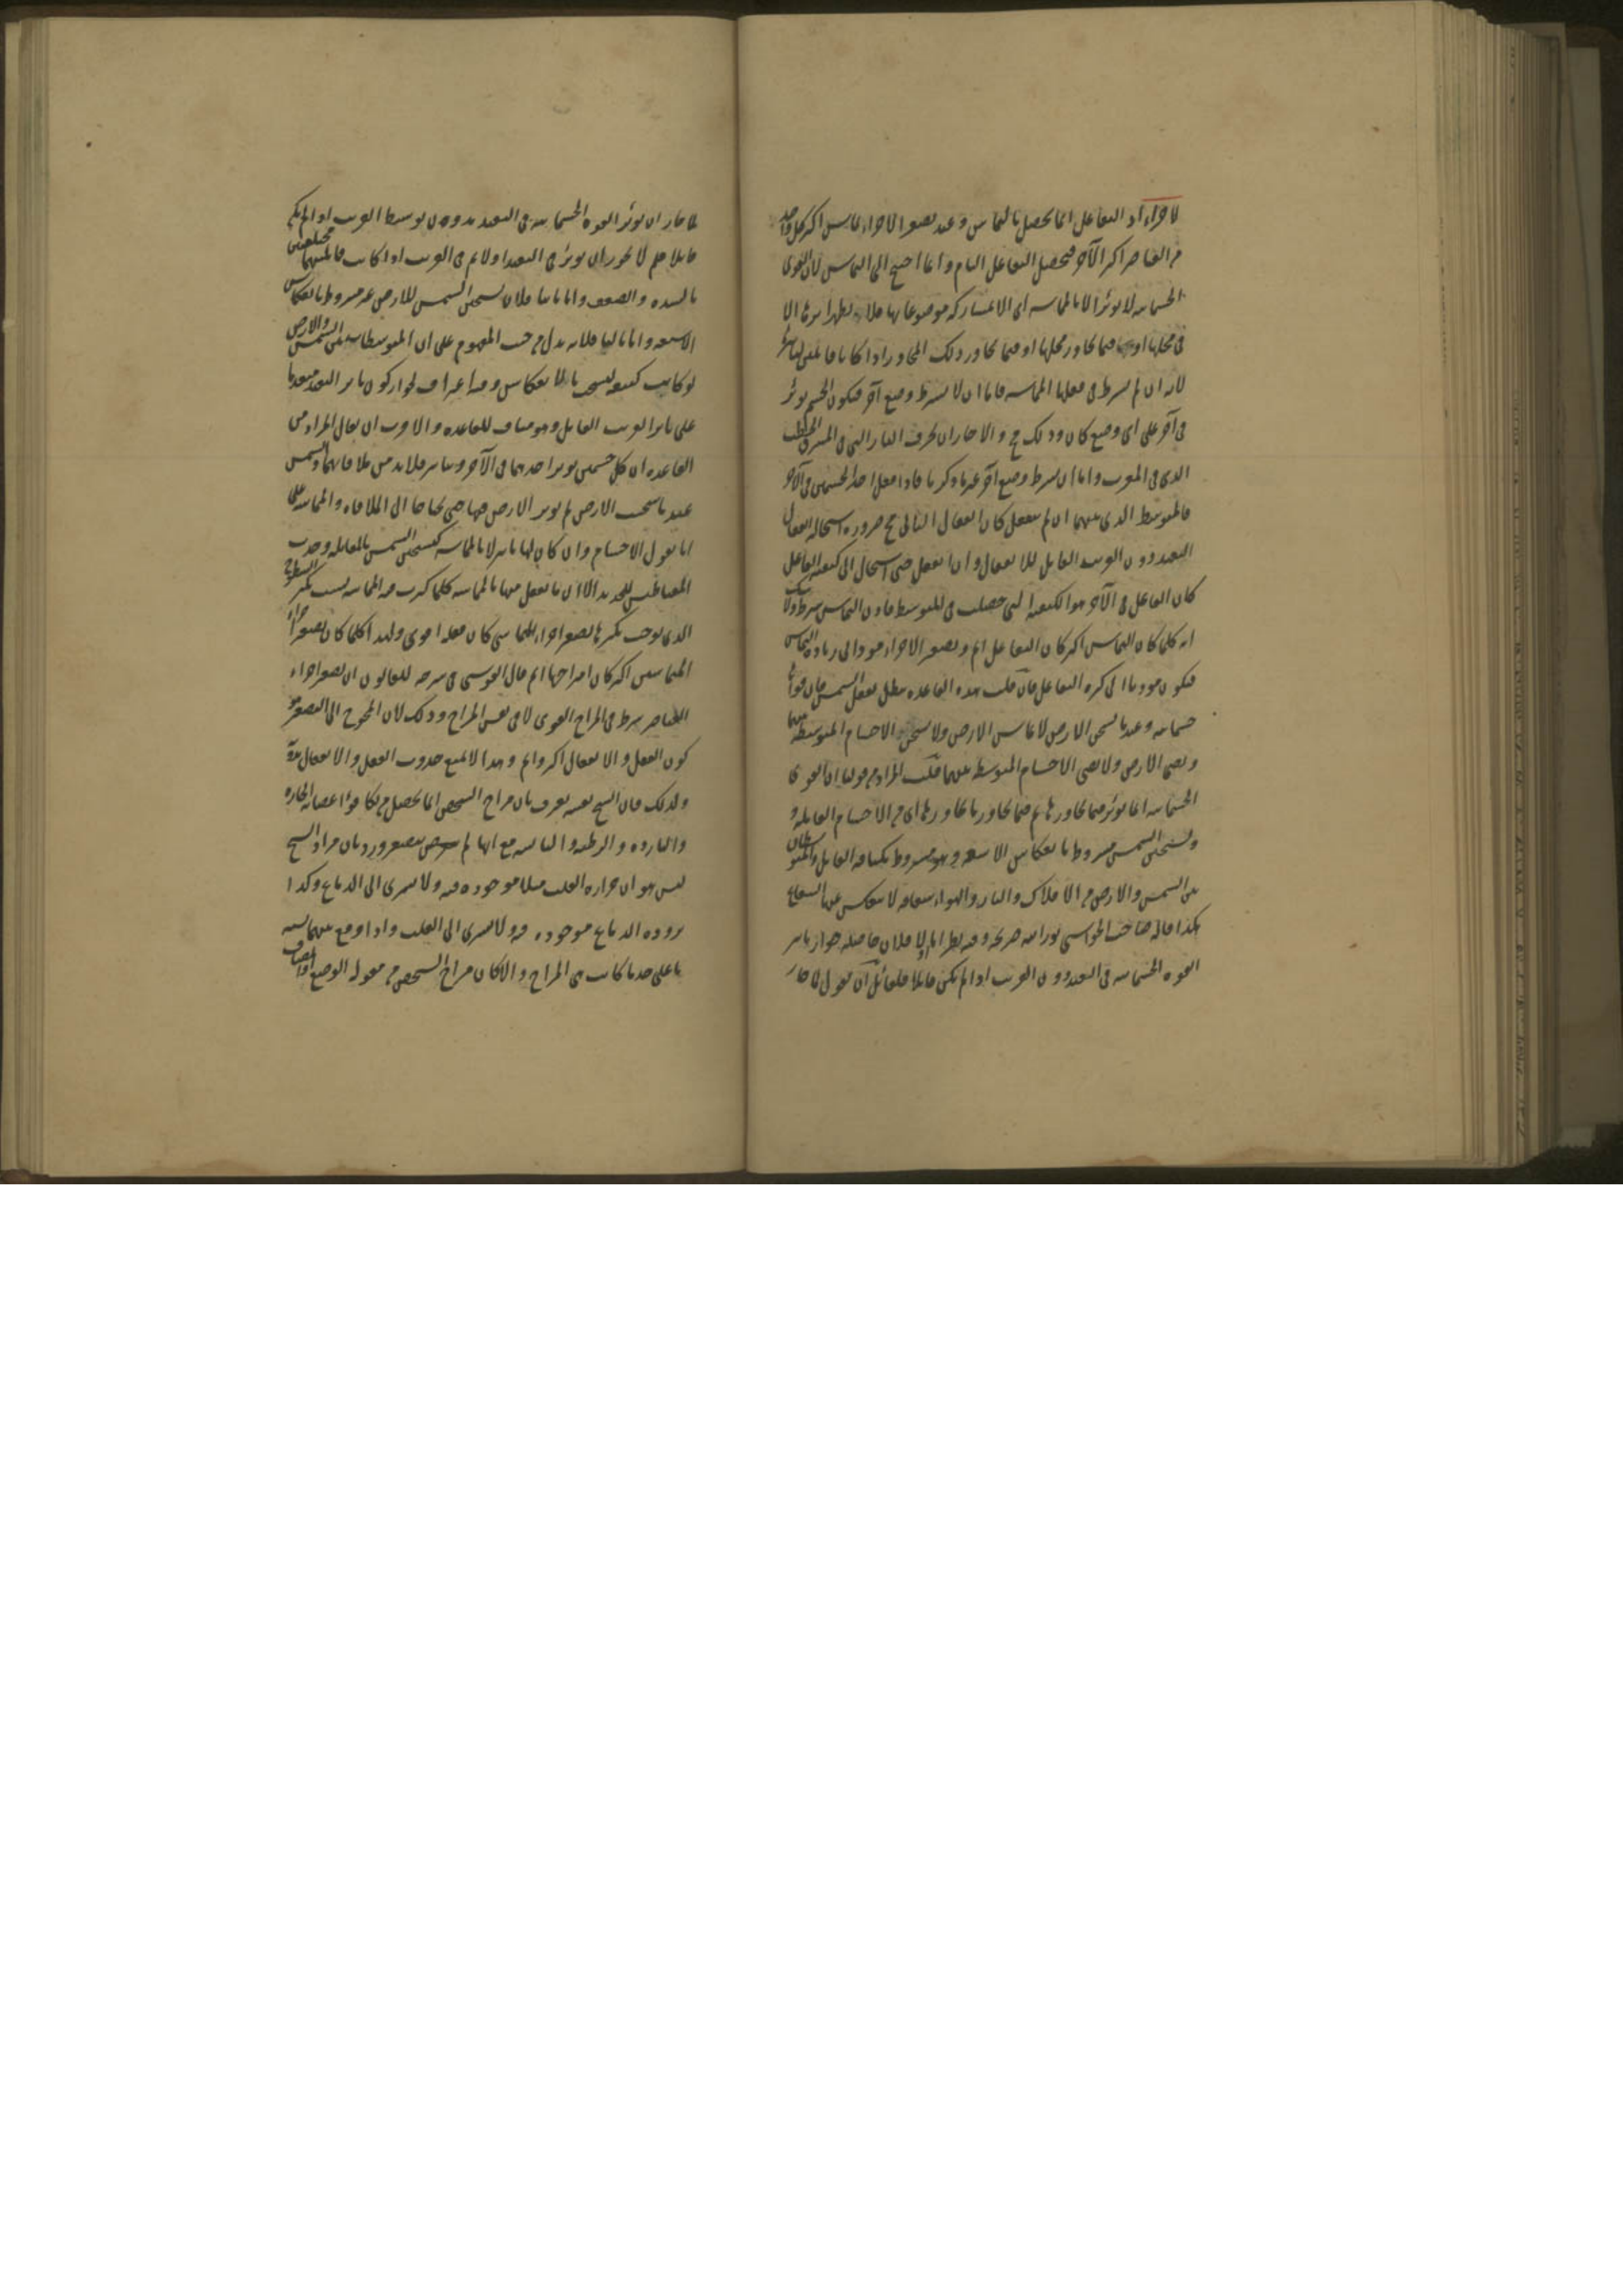 لاجزاء اذ التفاعل انما يحصل بالتماس وعند تصغر الاجزاء تماس اكثر كل واحد
من العناصر اكثر الآخر فيحصل التفاعل التام وانما احتيج الى التماس لان القوى
الجسمانيه لا تؤثر الا بالمماسه اى الا بمشاركه موضوعاتها فلا يظهر اثرها الا
فى محلها او فيما يجاور محلها او فيما يجاور ذلك المجاور اذا كانا قابلين لتاثيرها
لانه ان لم يشترط فى فعلها المماسه فاما ان لا يشترط وضع آخر فيكون الجسم يؤثر
فى آخر على اى وضع كان وذلك مح والا جاز ان تحرق النار التى فى المشرق الحطب
الذى فى المغرب واما ان يشترط وضع آخر غير ما ذكرنا فاذا فعل احد الجسمين فى الآخر
فالمتوسط الذى بينهما ان لم ينفعل كان انفعال الثانى مح ضروره استحاله انفعال
البعيد دون القريب القابل للانفعال وان انفعل حتى استحال الى كيفيه الفاعل
كان الفاعل فى الآخر هو الكيفيه التى حصلت فى المتوسط فاذن التماس شرط ولا شك
انه كلما كان التماس اكثر كان التفاعل اتم وتصغر الاجزاء مود الى زياده التماس
فيكون موديا الى كثره التفاعل فان قلت هذه القاعده تبطل بفعل الشمس فان قواها
جسمانيه وعندنا تسخن الارض لا تماس الارض ولا تسخن الاجسام المتوسطه بينهما
وتضئ الارض ولا تضئ الاجسام المتوسطه بينهما قلت المراد من قولنا ان القوى
الجسمانيه انما تؤثر فيما يجاورها ثم فيما يجاور ما يجاورها اى من الاجسام القابله و
وتسخين الشمس مشروط بانعكاس الاشعه وهو مشروط بكثافه القابل والمتوسطات
بين الشمس والارض من الافلاك والنار والهواء شفافه لا ينعكس عنها الشعاع
هكذا قاله صاحب الحواشى نور الله ضريحه وفيه نظر اما اولا فلان حاصله جواز تاثير
القوه الجسمانيه فى البعيد دون القريب اذا لم يكن قابلا فلقائل ان يقول لما جاز
لما جاز ان تؤثر القوه الجسمانيه فى البعيد بدون توسط القريب اذا لم يكن
قابلا فلم لا يجوز ان يؤثر فى البعيد اولا ثم فى القريب اذا كانت قابليتهما مختلفتين
بالشده والضعف واما ثانيا فلان تسخين الشمس للارض غير مشروط بانعكاس
الاشعه واما ثالثا فلانه يدل من حيث المفهوم على ان المتوسطات بين الشمس والارض
لو كانت كثيفه لتسخنت بالانعكاس وفيه اعتراف بجواز كون تاثير البعيد متقدما
على تاثير القريب القابل وهو مناف للقاعده والاقرب ان يقال المراد من
القاعده ان كل جسمين يؤثر احدهما فى الآخر ويتاثر فلا بد من ملاقاتهما والشمس
عند ما سخنت الارض لم تؤثر الارض فيها حتى يحتاجا الى الملاقاه والمماسه على
انا نقول الاجسام وان كان لها تاثير لا بالمماسه كتسخين الشمس بالمقابله وجذب
المغناطيس للحديد الا ان ما يفعل منها بالمماسه كلما كثرت فيه المماسه بسبب تكثر السطوح
الذى يوجب تكثرها تصغر اجزاء المتماسين كان فعله اقوى ولهذا كلما كان تصغر اجزاء
المتماسين اكثر كان امتزاجها اتم قال القوشى فى شرحه للقانون ان تصغر اجزاء
العناصر شرط فى المزاج القوى لا فى نفس المزاج وذلك لان المحوج الى التصغر هو
كون الفعل والانفعال اكثر واتم وهذا لا يمنع حدوث الفعل والانفعال بدونه
ولذلك فان الشيخ نفسه يعرف بان مزاج الشخص انما يحصل من تكافؤ اعضائه الحاره
والبارده والرطبه واليابسه مع انها لم تتصغر ورد بان مراد الشيخ
ليس هو ان حراره القلب مثلا موجوده فيه ولا تسرى الى الدماغ وكذا
بروده الدماغ موجوده فيه ولا تسرى الى القلب واذا وقع بينهما نسبه
ما على حد ما كانت هى المزاج والا كان مزاج الشخص من مقوله الوضع او المضاف